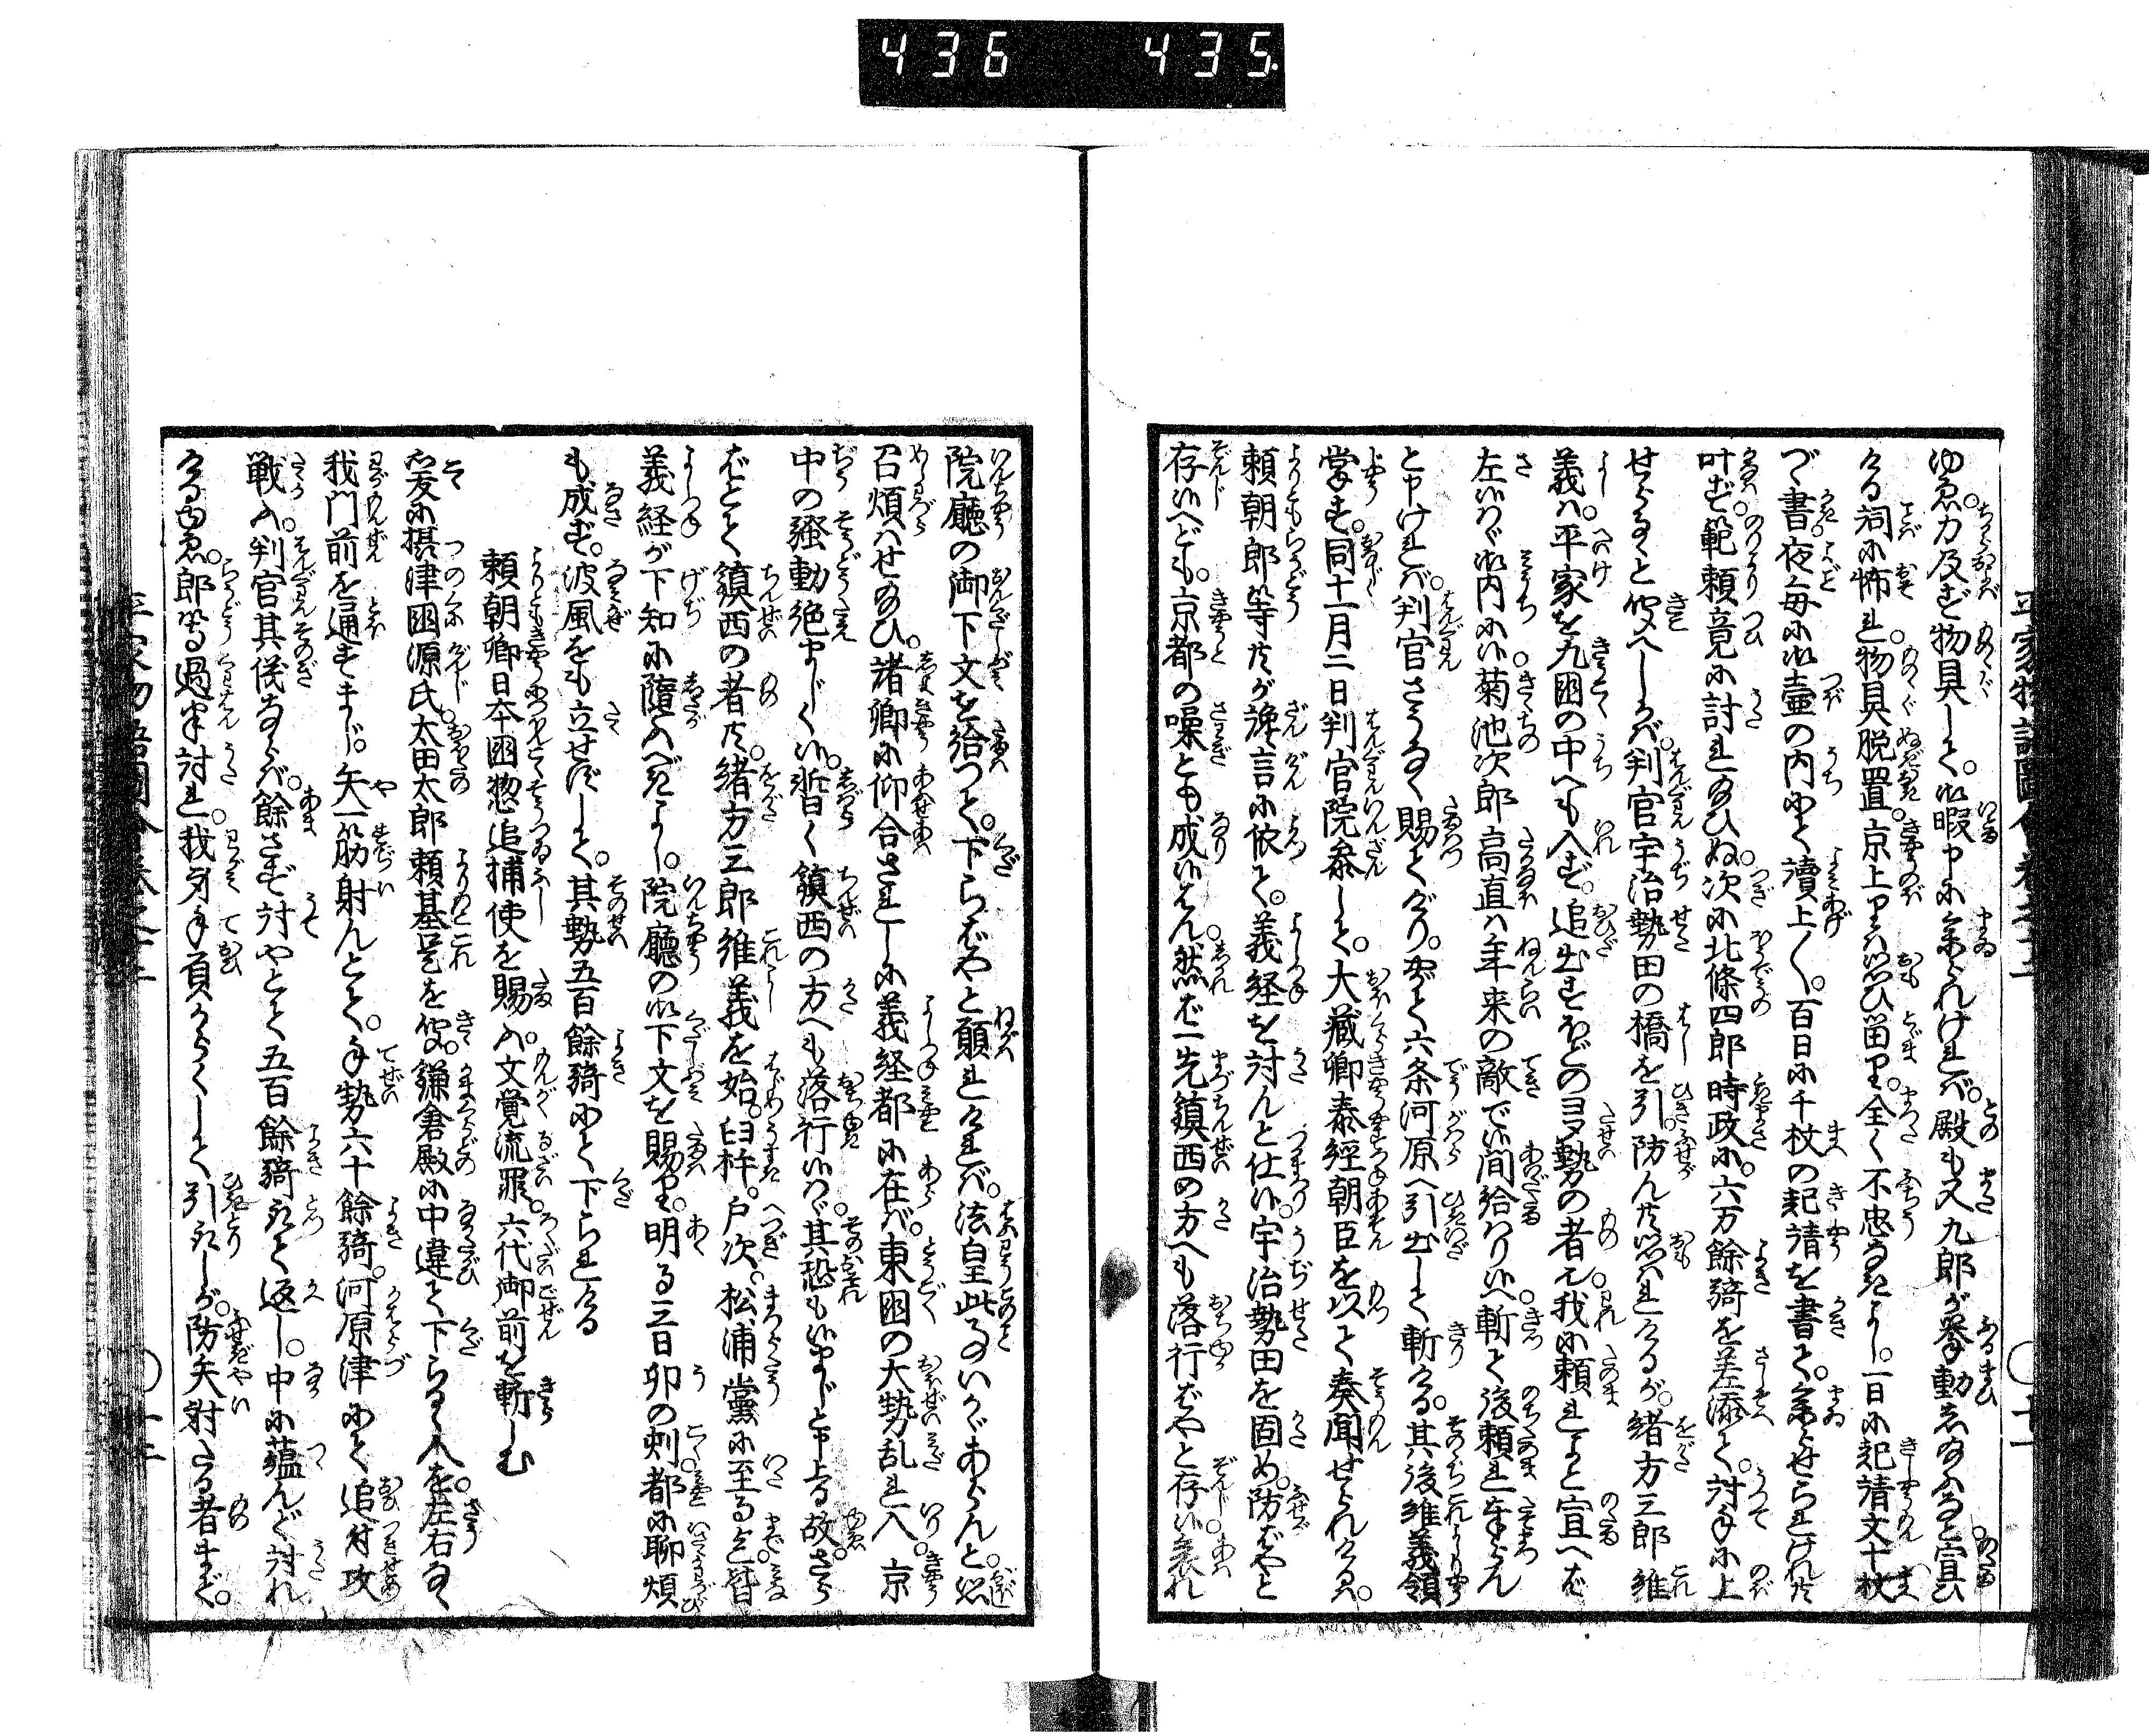 436 435
ゆゑ。力及ばず物具して。御暇申に参られければ。殿も又九郎が挙動し給ふなと宣ひ
ける詞に怖れ。物具脱置。京上りは思ひ留り。全く不忠なきよし。一日に起請文十枚
づゝ書。夜毎に御壷の内にて讀上〱。百日に千枚の起請を書て。参らせられけれ共
叶はず。範頼竟に討れ給ひぬ。次に北條四郎時政に。六万餘騎を差添て。討手に上
せらるゝと聞へしかば。判官宇治勢田の橋を引防ん共思はれけるが。緒方三郎維
義は。平家を九国の中へも入ず。追出すほどの多勢の者也。我に頼れよと宣へば
左候はゞ御内に候。菊池次郎高直は年来の敵で候間給はり候へ。斬て後頼れ奉らん
と申ければ。判官さうなく賜てげり。やがて六条河原へ引出して斬ける。其後維義領
掌す。同十一月二日判官院参して。大蔵卿泰經朝臣を以て奏聞せられけるは。
頼朝郎等共が讒言に依て。義経を討んと仕候。宇治勢田を固め。防ばやと
存候へども。京都の噪とも成候はん。然ば一先鎮西の方へも落行ばやと存候。哀れ
院廳の御下文を給つて。下らばやと願れければ。法皇此事いかゞあらんと。思
召煩はせ給ひ。諸卿に仰合されしに義経都に在ば。東国の大勢乱れ入。京
中の騒動絶まじく候。暫く鎮西の方へも落行候はゞ。其恐も候まじと申上る故。さら
ばとて鎮西の者共。緒方三郎維義を始。臼杵。戸次。松浦黨に至る迄。皆
義経が下知に隨ふべきよし。院廳の御下文を賜り。明る三日卯の刻。都に聊煩
も成ず。波風をも立せずして。其勢五百餘騎にて下られける
頼朝卿日本国惣追捕使を賜ふ。文覚流罪。六代御前を斬しむ
爰に摂津国源氏。太田太郎頼基是を聞。鎌倉殿に中違て下らるゝ人を。左右なく
我門前を通すまじ。矢一筋射んとて。手勢六十餘騎。河原津にて追付攻
戦ふ。判官其儀ならば。餘さず討やとて五百餘騎取て返し。中に蘊んで討れ
けるゆゑ。郎等過半討れ。我身手負からくして引取しが。防矢射たる者まで。